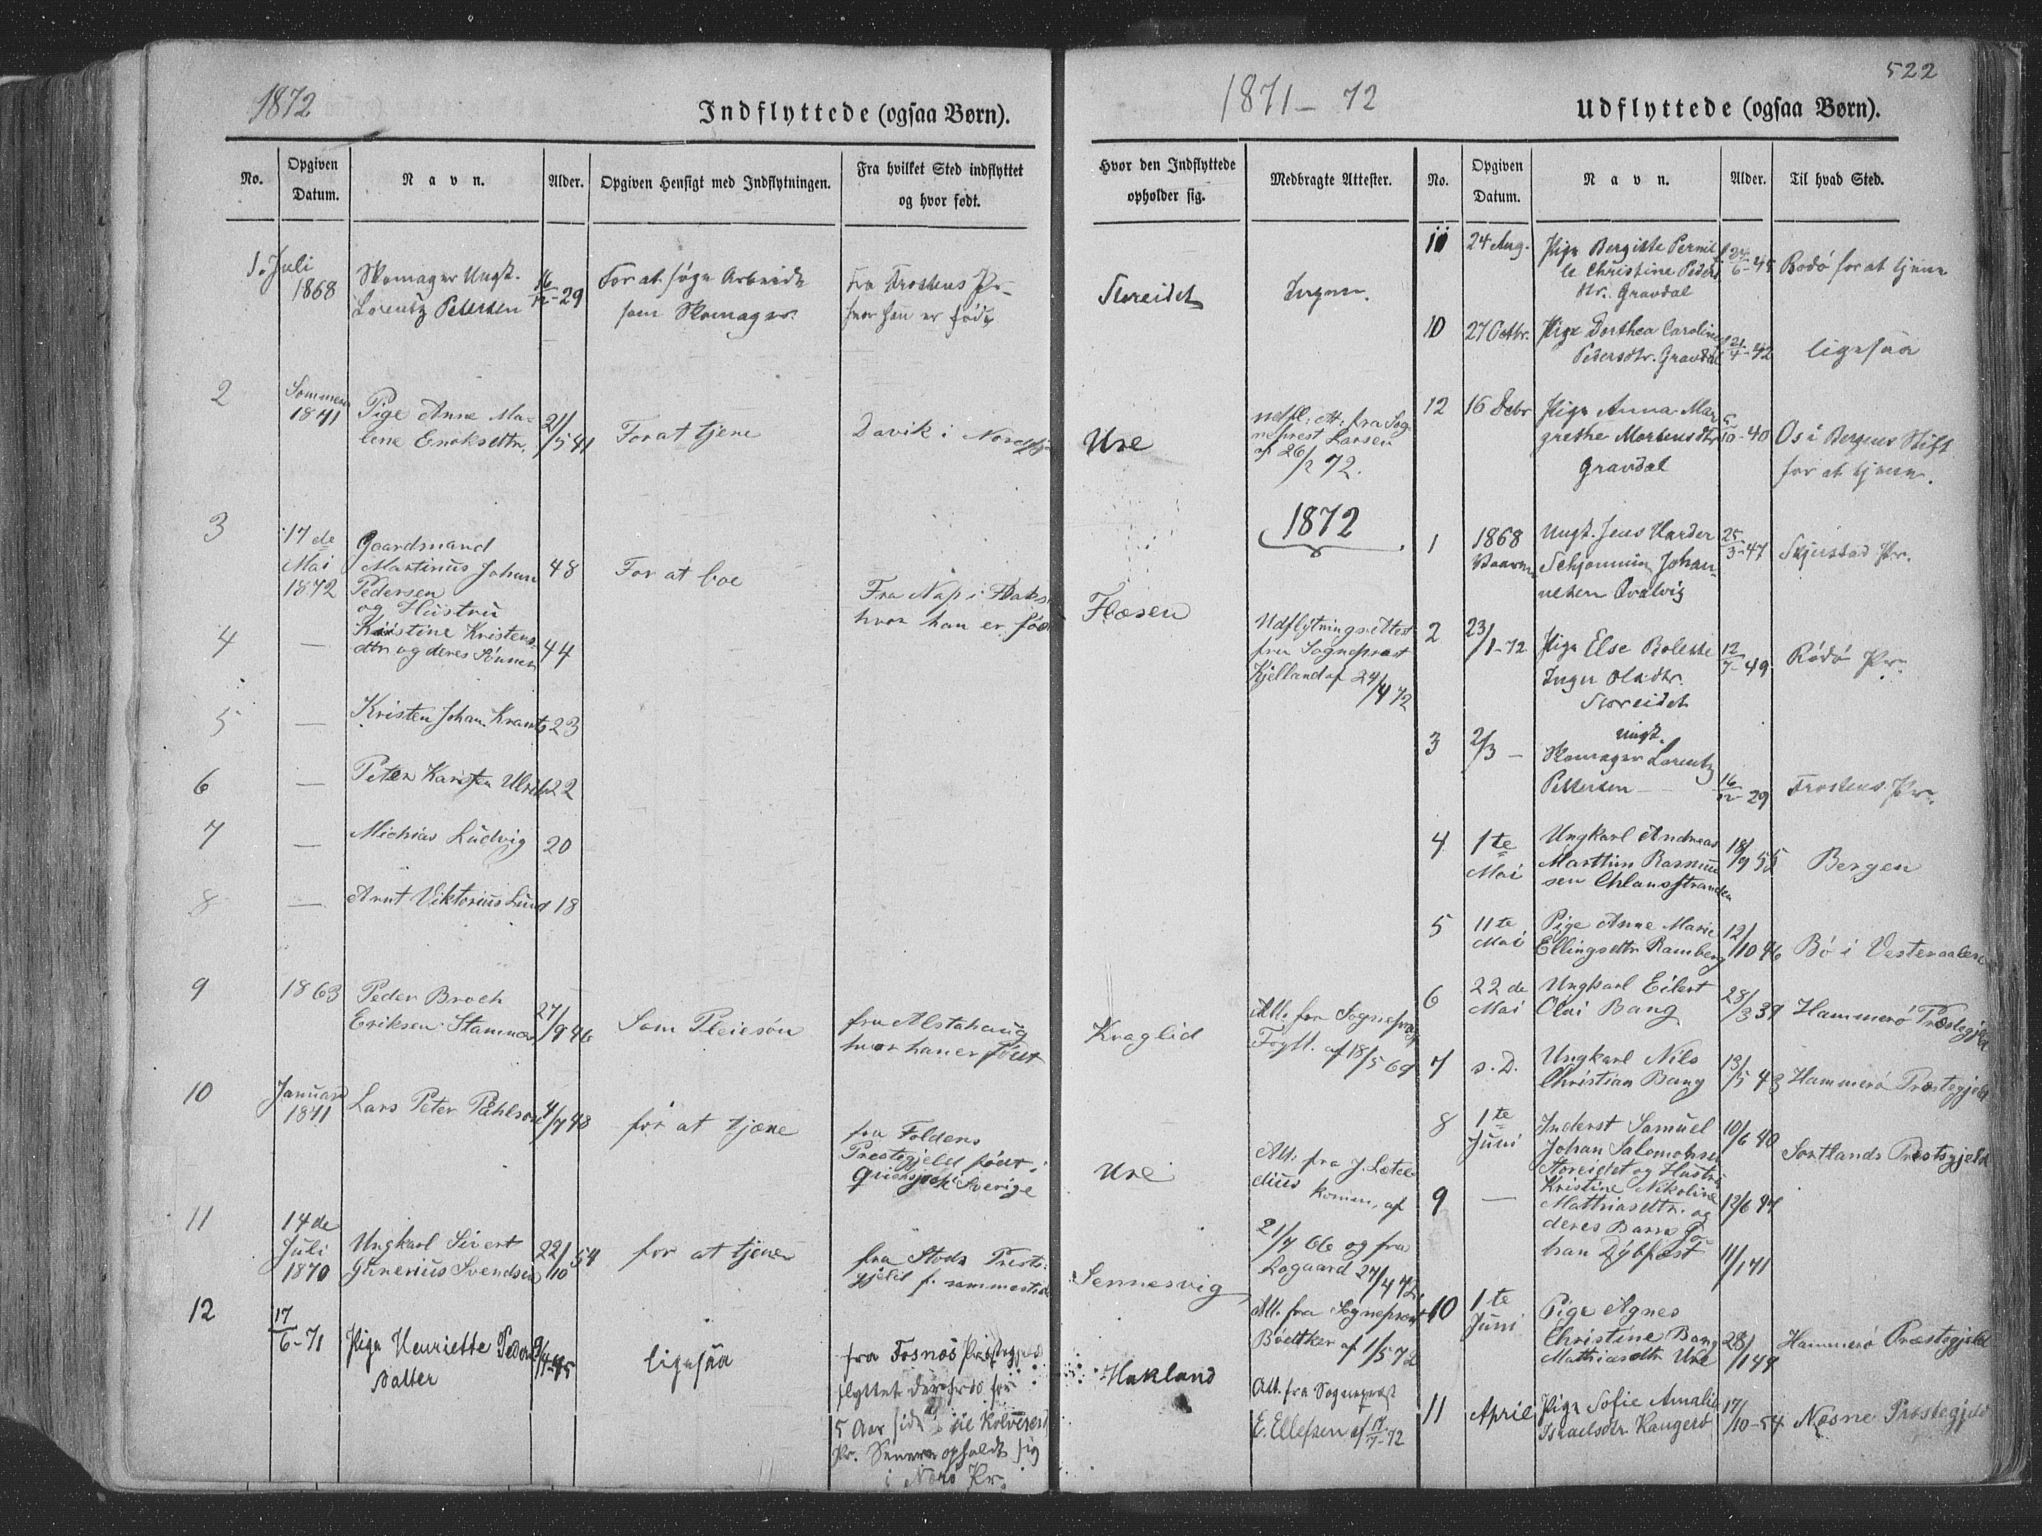 1872
Indflyttede (ogsaa Børn).
No.
Opgiven Datum.
Navn.
Alder.
Opgiven Hensigt med Indflytningen.
Fra hvilket Sted indflyttet og hvor født.
1. Juli 1868
Skomager Ungk.
Lorentz Petersen
16/12-29
For at søge Arbeide
som Skomager.
Fra Frostens Pr.
hvor han er født
2
Sommeren 1871
Pige Anne Ma-
lene Eriksdttr.
21/5 41
For at tjene
Davik i Nordfj
3
17de Mai 1872
Gaardmand
Martinus Johan
Pedersen
og Hustru
48
For at boe
Fra Nap i Flaks.
hvor han er født
4
—
Kristine Kristens-
dtr og deres Sønner
44
5
—
Kristen Johan Krantz
23
6
—
Peter Karsten Ulrik
22
7
—
Michias Ludvig
20
8
—
Arnt Viktorius Lund
18
9
1863
Peder Broch
Eriksen Stamnes
27/9 46
Som Pleiesøn
fra Alstahaug
hvor han er født
10
Januar 1871
Lars Peter Pahlson
4/7 48
for at tjene
fra Foldens
Prestegjeld født i
Sverige
11
14de Juli 1870
Ungkarl Sivert
Gunerius Svendsen
22/10 54
for at tjene
fra Stods Preste-
gjeld f. sammesteds
12
17/6-71
Pige Henriette Peders
datter
9/4-45
ligesaa
fra Fosnøs Præstegjeld
flyttet derfra for
5 Aar siden til Kolvereid
Pr. Senere opholdt sig
i Nærø Pr.
1871-72
522
Udflyttede (ogsaa Børn).
Hvor den Indflyttede opholder sig.
Medbragte Attester.
No.
Opgiven Datum.
Navn.
Alder.
Til hvad Sted.
Storeidet
Ingen.
Ure
Udfl: At: fra Sog
neprest Larsen
af 26/2 72.
Flæsen
Udflytningsattest
fra Sogneprest
Kjelland af 24/4 72
Kraglid
Att. fra Sogneprest
Fogtt. af 18/5 69
Ure
Att. fra J. Læsta
dius komm. af
21/7 66 og fra
Aagaard 27/4 72.
Sennesvig
Att. fra Sogneprest
Bødtker af 1/5 72
Hakland
Att. fra Sogneprest
E. Ellefsen af 17/7-72
11
24 Aug.
Pige Bergitte Pernil
le Christine Peders
dtr. Gravdal
24/6-45
Bodø for at tjene
10
27 Octbr.
Pige Dorthea Caroline
Pedersdtr. Gravdal
21/4-42
ligesaa
12
16 Debr
Pige Anna Mar
grethe Mortensdtr
Gravdal
6/10-40
Os i Bergens Stift
for at tjene.
1872
1
1868 Vaaren
Ungk. Jens Harder
Schjønning Johan-
nesen Qvalvig
25/3-47
Skjerstad Pr.
2
23/1-72
Pige Else Bolette
Inger Olsdtr.
Storeidet
12/7-49
Rødø Pr.
3
2/3 —
Ungk.
Skomager Lorentz
Petersen
16/12-29
Frostens Pr.
4
1te Mai
Ungkarl Andreas
Marthin Rasmus
sen Ohlansstranden
18/9 55
Bergen
5
11te Mai
Pige Anne Marie
Ellingsdttr Ramberg
12/10 46
Bø i Vesteraalen
6
22de Mai
Ungkarl Eilert
Olai Bang
28/3 39
Hammerø Præstegjeld
7
s. D.
Ungkarl Nils
Christian Bang
13/5 43
Hammerø Præstegjeld
8
1te Juni
Inderst Samuel
Johan Salomonsen
Storeidet og Hustru
10/6 40
Sortlands Præstegjeld
9
—
Kristine Nikoline
Mathiasdtr. og
deres Barn Jo-
han Dybfest
12/6 47
11/1 71
10
1te Juni
Pige Agnes
Christine Bang
Mathiasdtr Ure
28/1 49
Hammerø Præstegjeld
11
April
Pige Sofie Amalie
Israelsdtr Kangerø
17/10-54
Næsne Præstegjeld